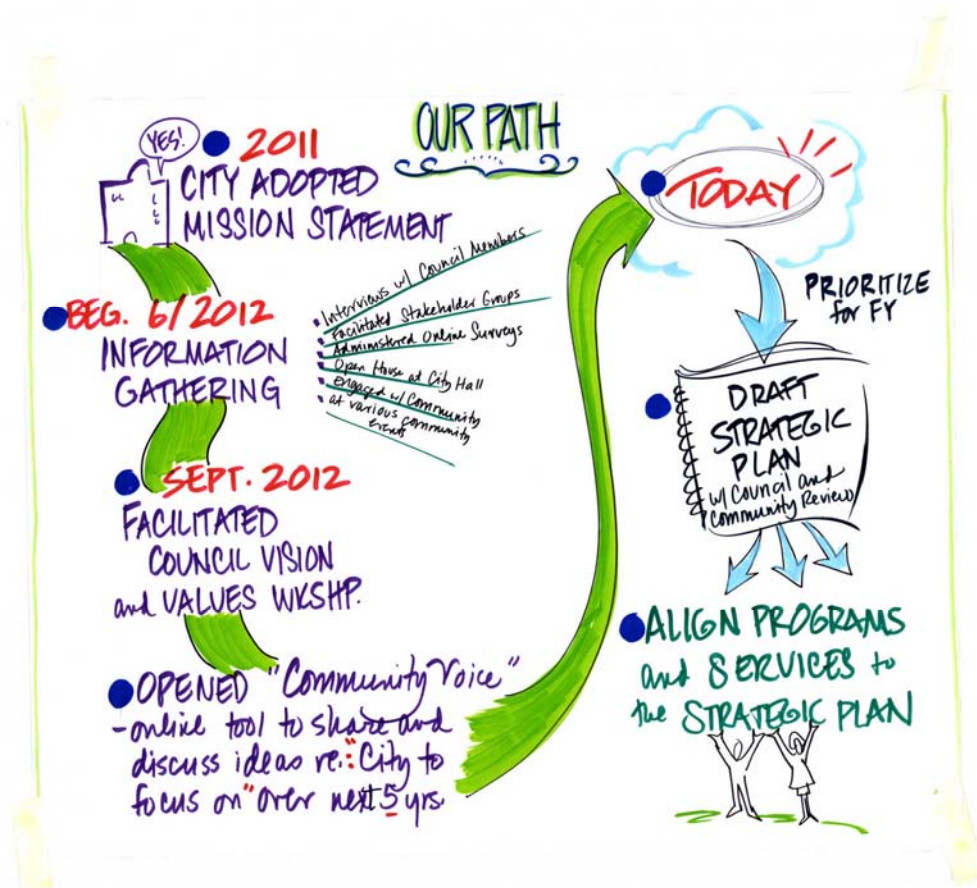 OUR PATH
YES!
2011
CITY ADOPTED
MISSION STATEMENT
BEG. 6/2012
INFORMATION
GATHERING
Interviews w/ Council Members
Facilitated Stakeholder Groups
Administered Online Surveys
Open House at City Hall
Engaged w/ Community
at various community
events
SEPT. 2012
FACILITATED
COUNCIL VISION
and VALUES WKSHP.
OPENED "Community Voice"
- online tool to share and
discuss ideas re: "City to
focus on" over next 5 yrs.
TODAY
PRIORITIZE
for FY
DRAFT
STRATEGIC
PLAN
w/ Council and
Community Review
ALIGN PROGRAMS
and SERVICES to
the STRATEGIC PLAN